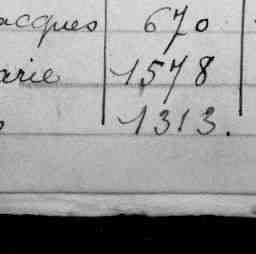 acques 670
arie 1578
1313.